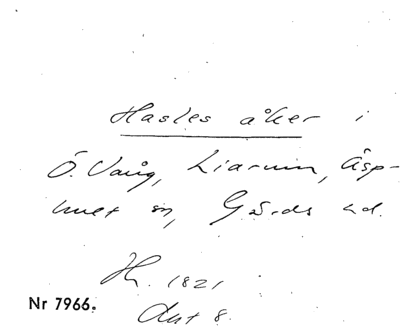 Hasles åker i
Ö. Vång, Liarum, Äsp-
huet sn, Gärds hd.
Hh. 1821
Akt 8.
Nr 7966.